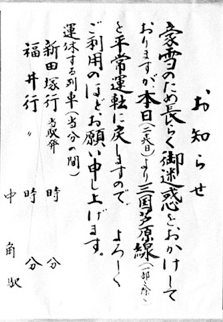 お知らせ
豪雪のため長らく御迷惑をおかけして
おりますが本日(二六日)より三国芦原線(一部を除く)
と平常運転に戻しますので、よろしく
ご利用のほどお願い申し上げます。
運休する列車(当分の間)
新田塚行 当駅発 時 分
福井行 〃 時 分
中角駅